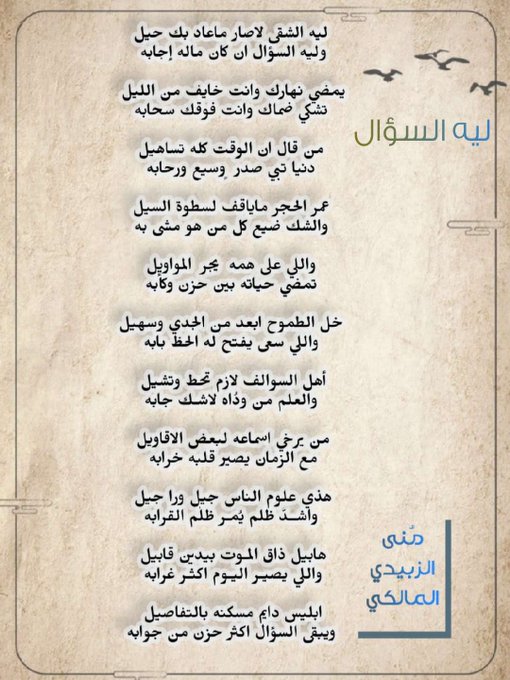 ليه السؤال
ليه الشقى لاصار ماعاد بك حيل
وليه السؤال ان كان ماله إجابه
يمضي نهارك وانت خايف من الليل
تشكي ضماك وانت فوقك سحابه
من قال ان الوقت كله تساهيل
دنيا تبي صدر وسيع ورحابه
عمر الحجر ماياقف لسطوة السيل
والشك ضيع كل من هو مشى به
واللي على همه يجر المواويل
تمضي حياته بين حزن وكآبه
خل الطموح ابعد من الجدي وسهيل
واللي سعى يفتح له الحظ بابه
أهل السوالف لازم تحط وتشيل
والعلم من ودّاه لاشك جابه
من يرخي اسماعه لبعض الاقاويل
مع الزمان يصير قلبه خرابه
هذي علوم الناس جيل ورا جيل
واشدّ ظلم يُمر ظلم القرابه
هابيل ذاق الموت بيدين قابيل
واللي يصير اليوم اكثر غرابه
ابليس دايم مسكنه بالتفاصيل
ويبقى السؤال اكثر حزن من جوابه
مُنى
الزبيدي
المالكي